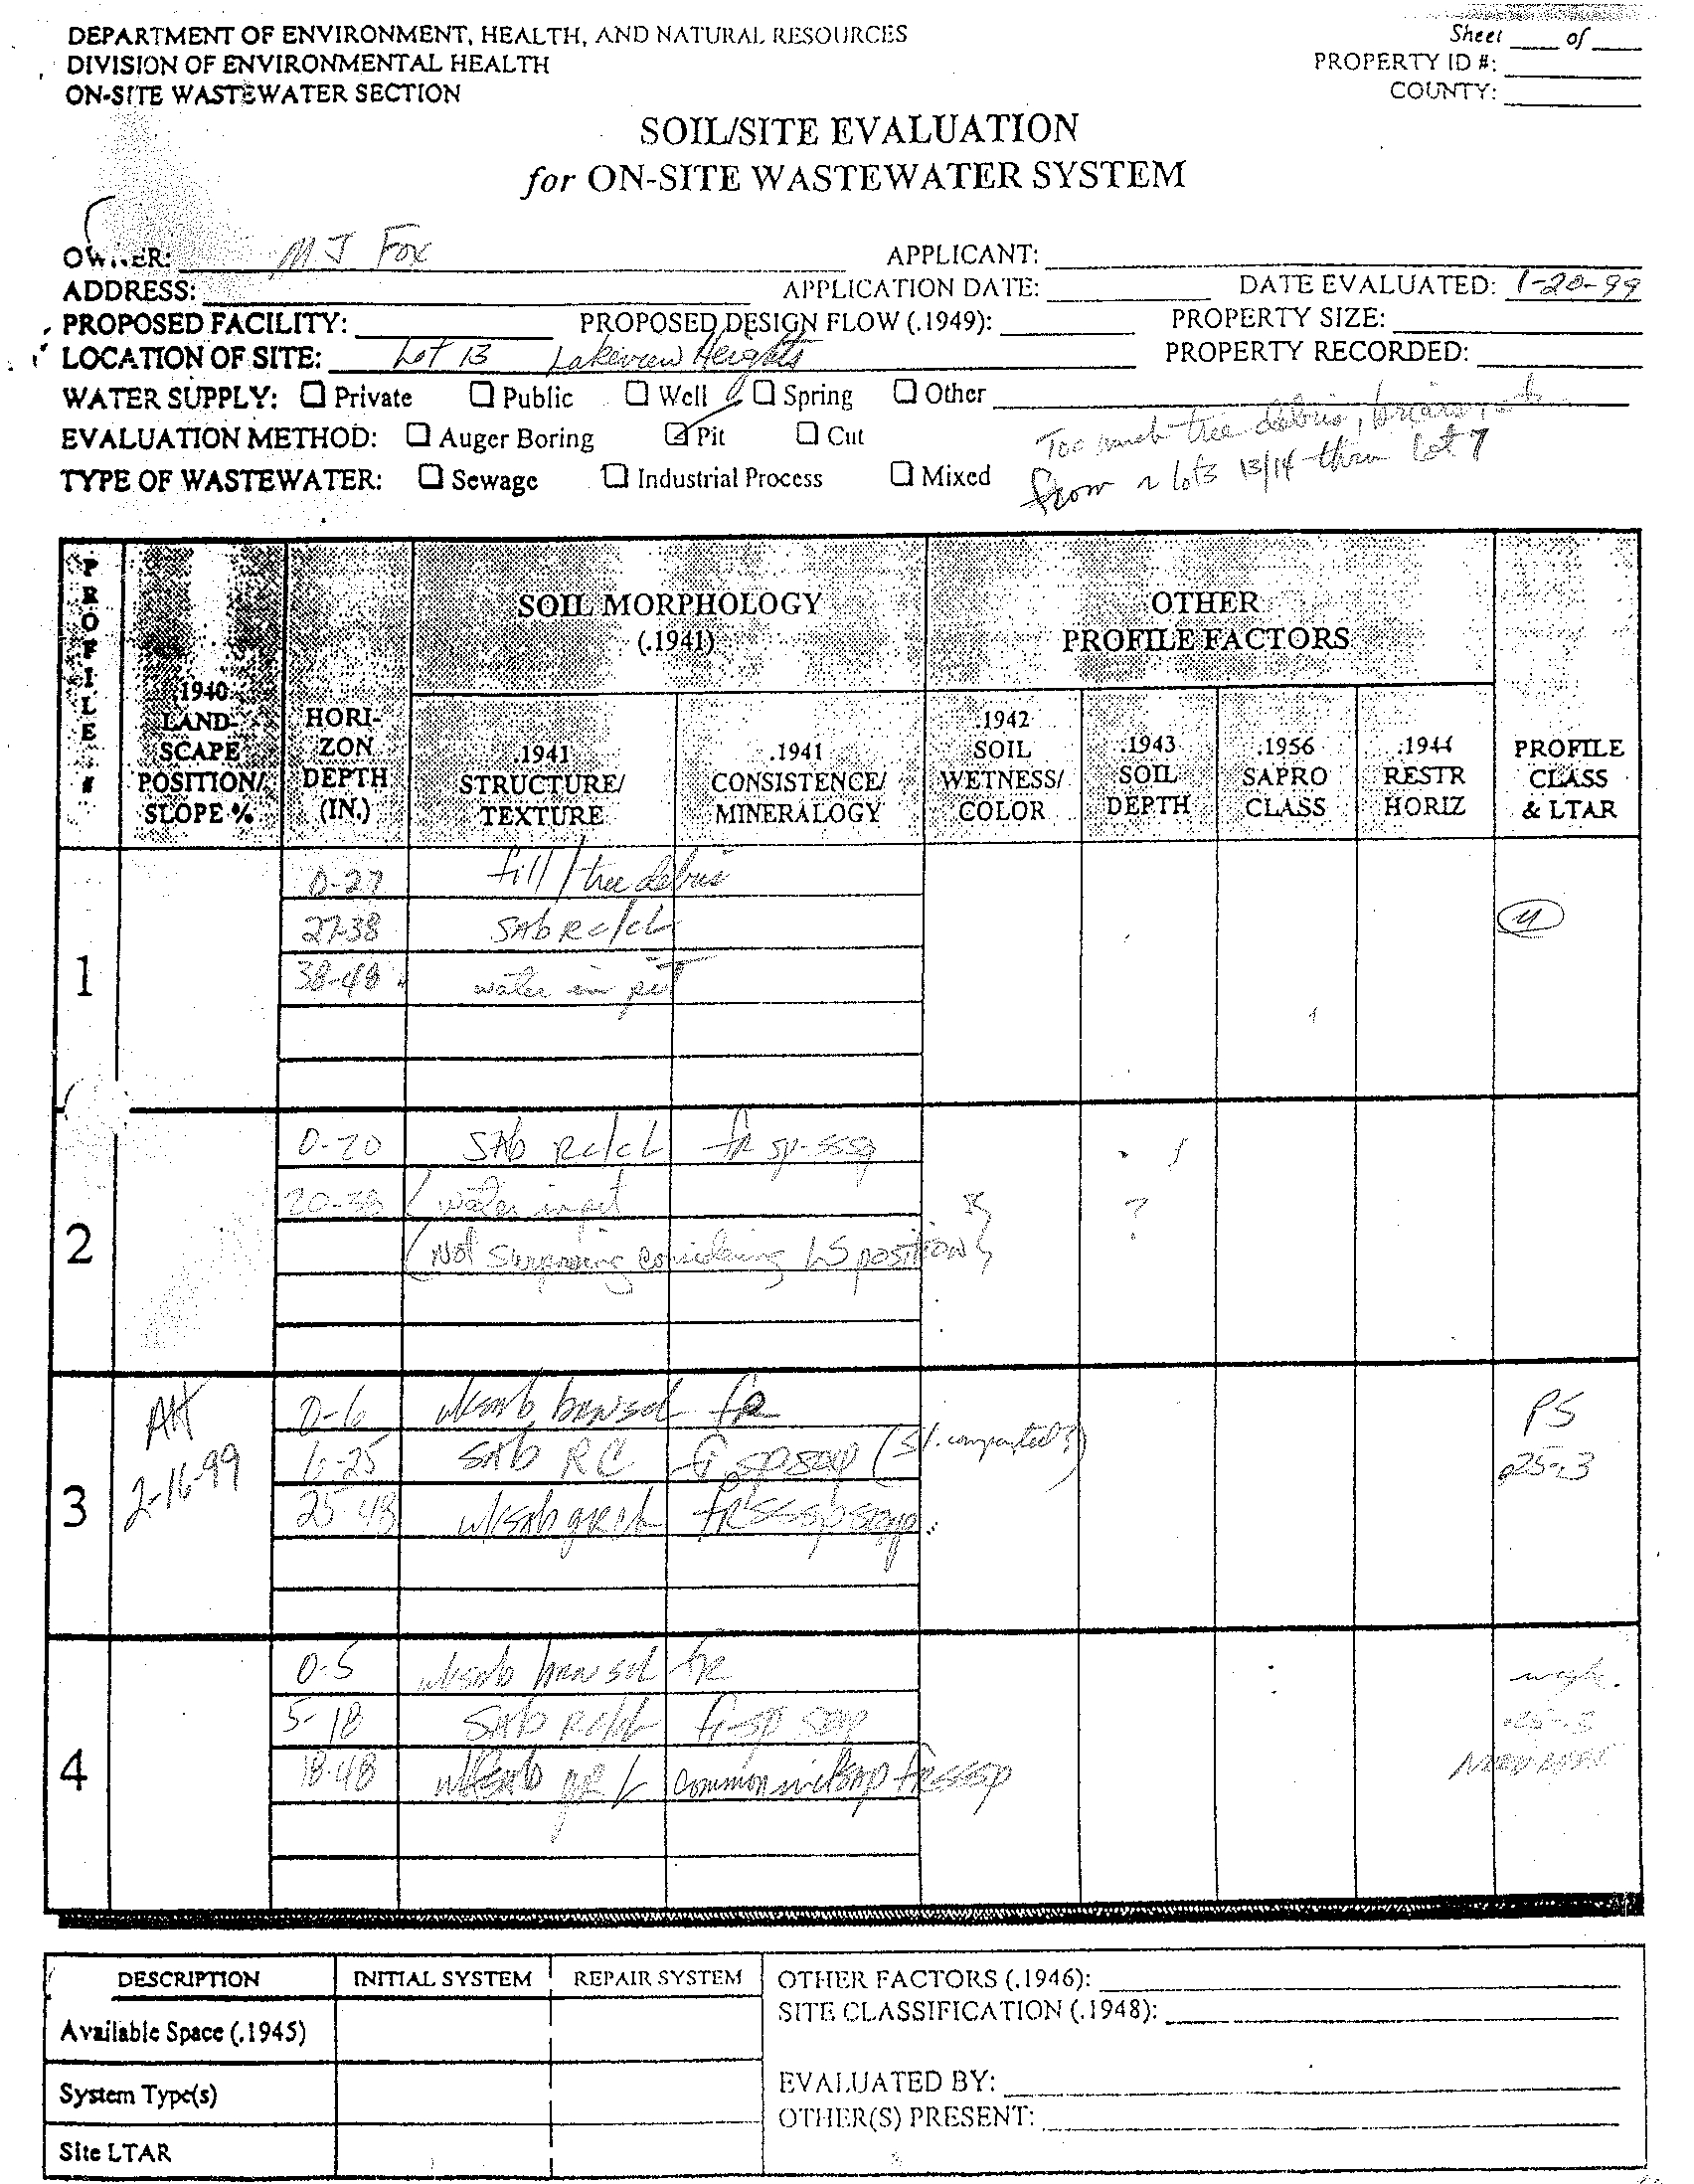 DEPARTMENT OF ENVIRONMENT, HEALTH, AND NATURAL RESOURCES
DIVISION OF ENVIRONMENTAL HEALTH
ON-SITE WASTEWATER SECTION
Sheet ___ of ___
PROPERTY ID #:
COUNTY:
SOIL/SITE EVALUATION
for ON-SITE WASTEWATER SYSTEM
OWNER: M J Fox
APPLICANT:
ADDRESS:
APPLICATION DATE:
DATE EVALUATED: 1-20-99
PROPOSED FACILITY:
PROPOSED DESIGN FLOW (.1949):
PROPERTY SIZE:
LOCATION OF SITE: Lot 13 Lakeview Heights
PROPERTY RECORDED:
WATER SUPPLY: Private Public Well Spring Other
EVALUATION METHOD: Auger Boring Pit Cut
TYPE OF WASTEWATER: Sewage Industrial Process Mixed
Too much tree debris, briars, etc
from ~ lots 13/14 thru Lot 7
PROFILE #
.1940 LAND-SCAPE POSITION/ SLOPE %
HORI-ZON DEPTH (IN.)
SOIL MORPHOLOGY (.1941)
.1941 STRUCTURE/ TEXTURE
.1941 CONSISTENCE/ MINERALOGY
OTHER PROFILE FACTORS
.1942 SOIL WETNESS/ COLOR
.1943 SOIL DEPTH
.1956 SAPRO CLASS
.1944 RESTR HORIZ
PROFILE CLASS & LTAR
1
0-27 fill/tree debris
27-38 SAb RC/CL
38-48 water in pit
2
0-20 SAb RC/CL fR SP-SSSP
20-38 (water in pit
(Not surprising considering LS position)
?
3
AH
2-16-99
0-6 wksab brwscl fR
6-25 SAb RC fi (sl. compacted?)
25-48 wksab
PS
.25-.3
4
0-5 wksab brwscl fR
5-18 SAb RC/CL fi-SP
18-48 wksab common
DESCRIPTION INITIAL SYSTEM REPAIR SYSTEM
Available Space (.1945)
System Type(s)
Site LTAR
OTHER FACTORS (.1946):
SITE CLASSIFICATION (.1948):
EVALUATED BY:
OTHER(S) PRESENT: